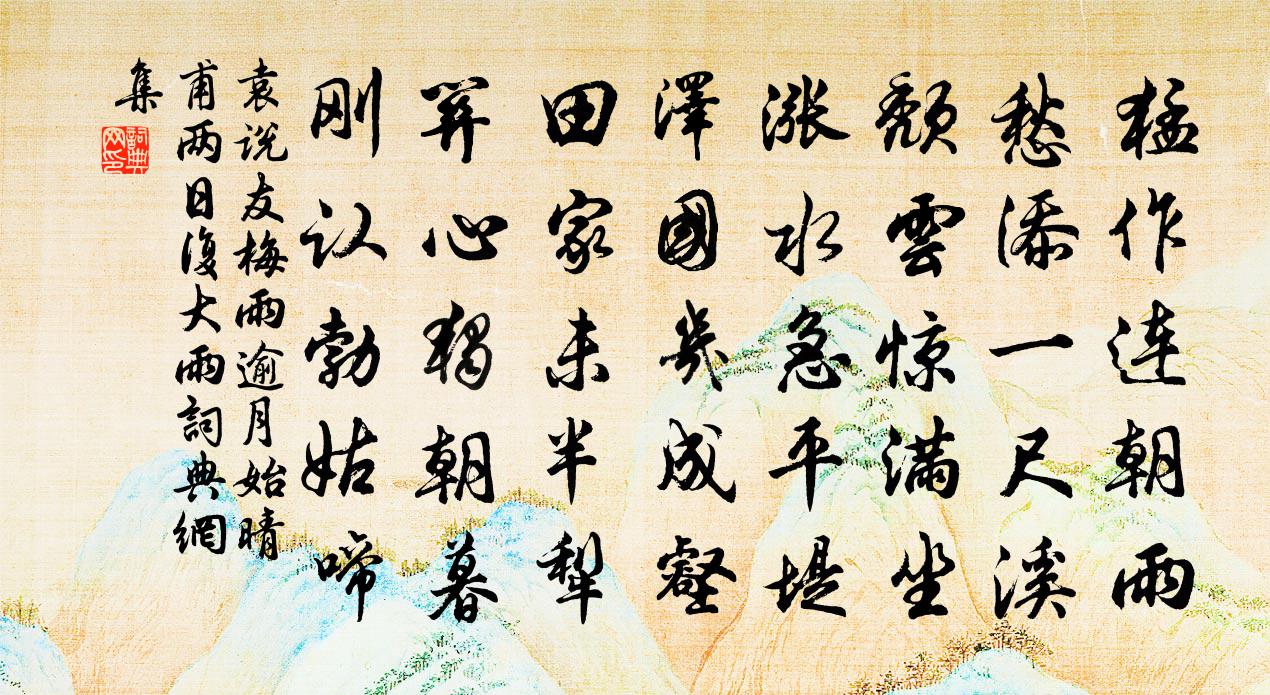 猛作連朝雨
愁添一尺溪
頹雲惊滿坐
漲水急平堤
澤國幾成壑
田家未半犁
关心獨朝暮
刚认勃姑啼
袁说友梅雨逾月始晴
甫两日復大雨詞典網
集
詞典网印